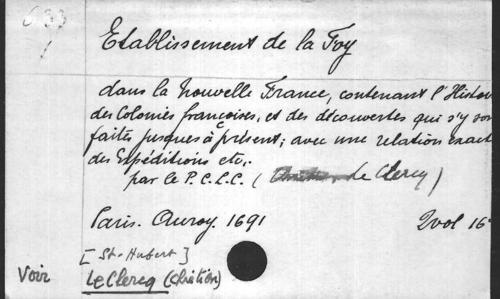 633
1
Etablissement de la Foy
dans la Nouvelle France, contenant l'Histoi
des Colonies françoises, et des découvertes qui s'y son
faites jusques à présent; avec une relation exact
des Expéditions etc,.
par le P.C.L.C. ( Le Clercq)
Paris. Auroy. 1691 2 vol 16°
[St-Hubert]
Voir LeClercq (Chrétien)